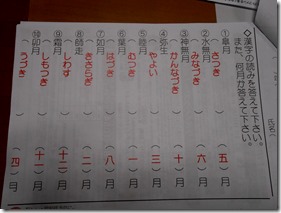 氏名(
◇漢字の読みを答えて下さい。
また、何月か答えて下さい。
①皐月(さつき)(五)月
②水無月(みなづき)(六)月
③神無月(かんなづき)(十)月
④弥生(やよい)(三)月
⑤睦月(むつき)(一)月
⑥葉月(はづき)(八)月
⑦如月(きさらぎ)(二)月
⑧師走(しわす)(十二)月
⑨霜月(しもつき)(十一)月
⑩卯月(うづき)(四)月